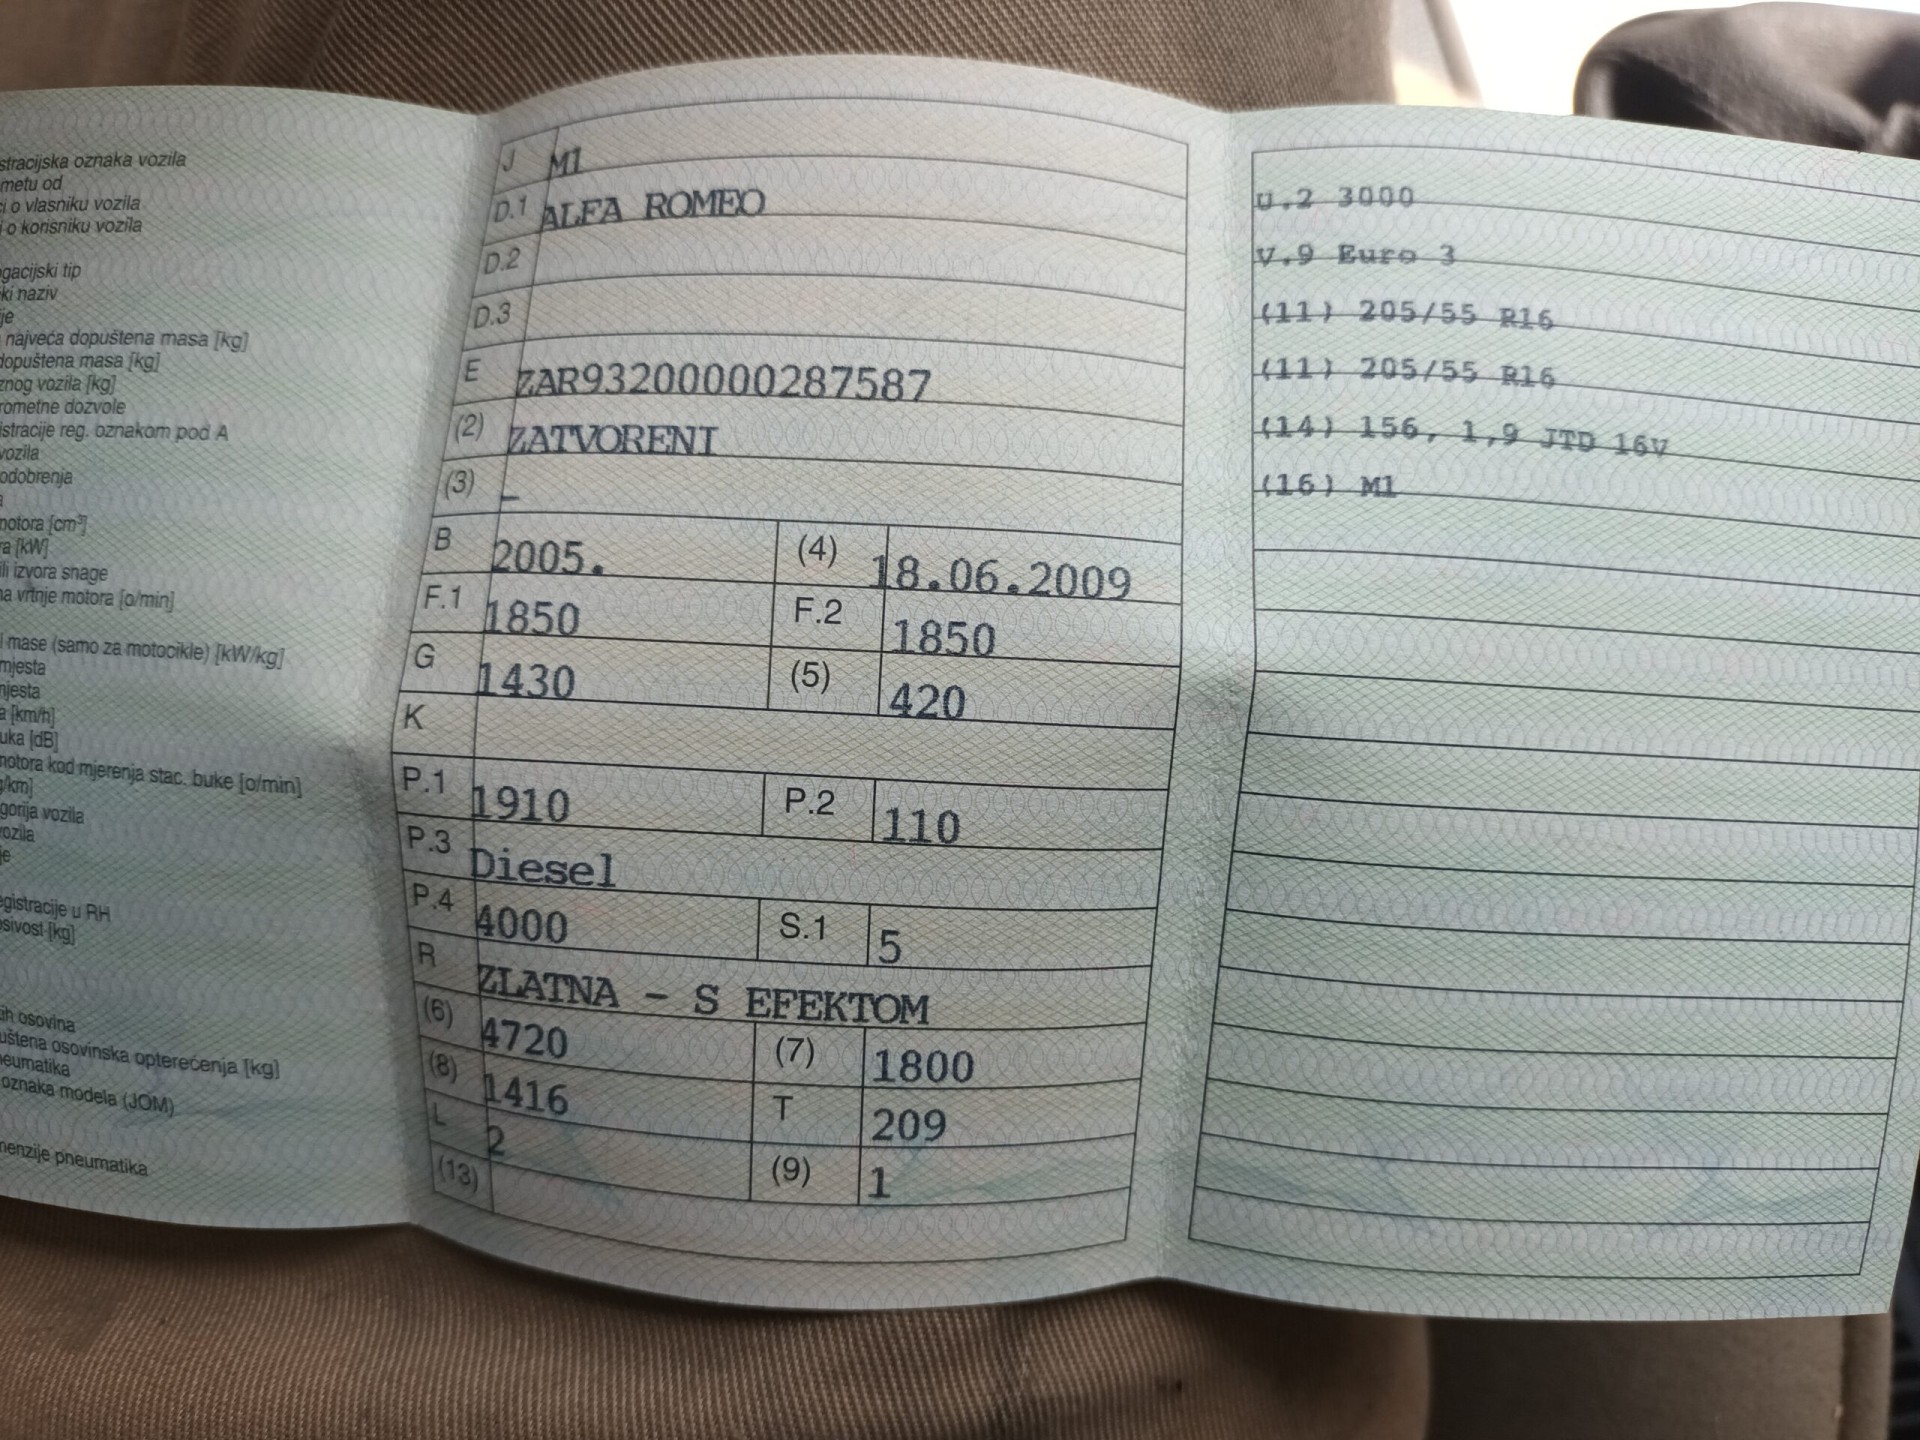 stracijska oznaka vozila
metu od
i o vlasniku vozila
o korisniku vozila
gacijski tip
ki naziv
je
najveća dopuštena masa [kg]
dopuštena masa [kg]
znog vozila [kg]
rometne dozvole
istracije reg. oznakom pod A
vozila
odobrenja
a
motora [cm³]
ra [kW]
ili izvora snage
na vrtnje motora [o/min]
i mase (samo za motocikle) [kW/kg]
mjesta
mjesta
a [km/h]
uka [dB]
motora kod mjerenja stac. buke [o/min]
g/km]
gorija vozila
vozila
je
egistracije u RH
osivost [kg]
ih osovina
uštena osovinska opterećenja [kg]
neumatika
oznaka modela (JOM)
menzije pneumatika
J M1
D.1 ALFA ROMEO
D.2
D.3
E ZAR93200000287587
(2) ZATVORENI
(3) –
B 2005. (4) 18.06.2009
F.1 1850 F.2 1850
G 1430 (5) 420
K
P.1 1910 P.2 110
P.3 Diesel
P.4 4000 S.1 5
R ZLATNA - S EFEKTOM
(6) 4720 (7) 1800
(8) 1416 T 209
L 2 (9) 1
(13)
U.2 3000
V.9 Euro 3
(11) 205/55 R16
(11) 205/55 R16
(14) 156, 1,9 JTD 16V
(16) M1